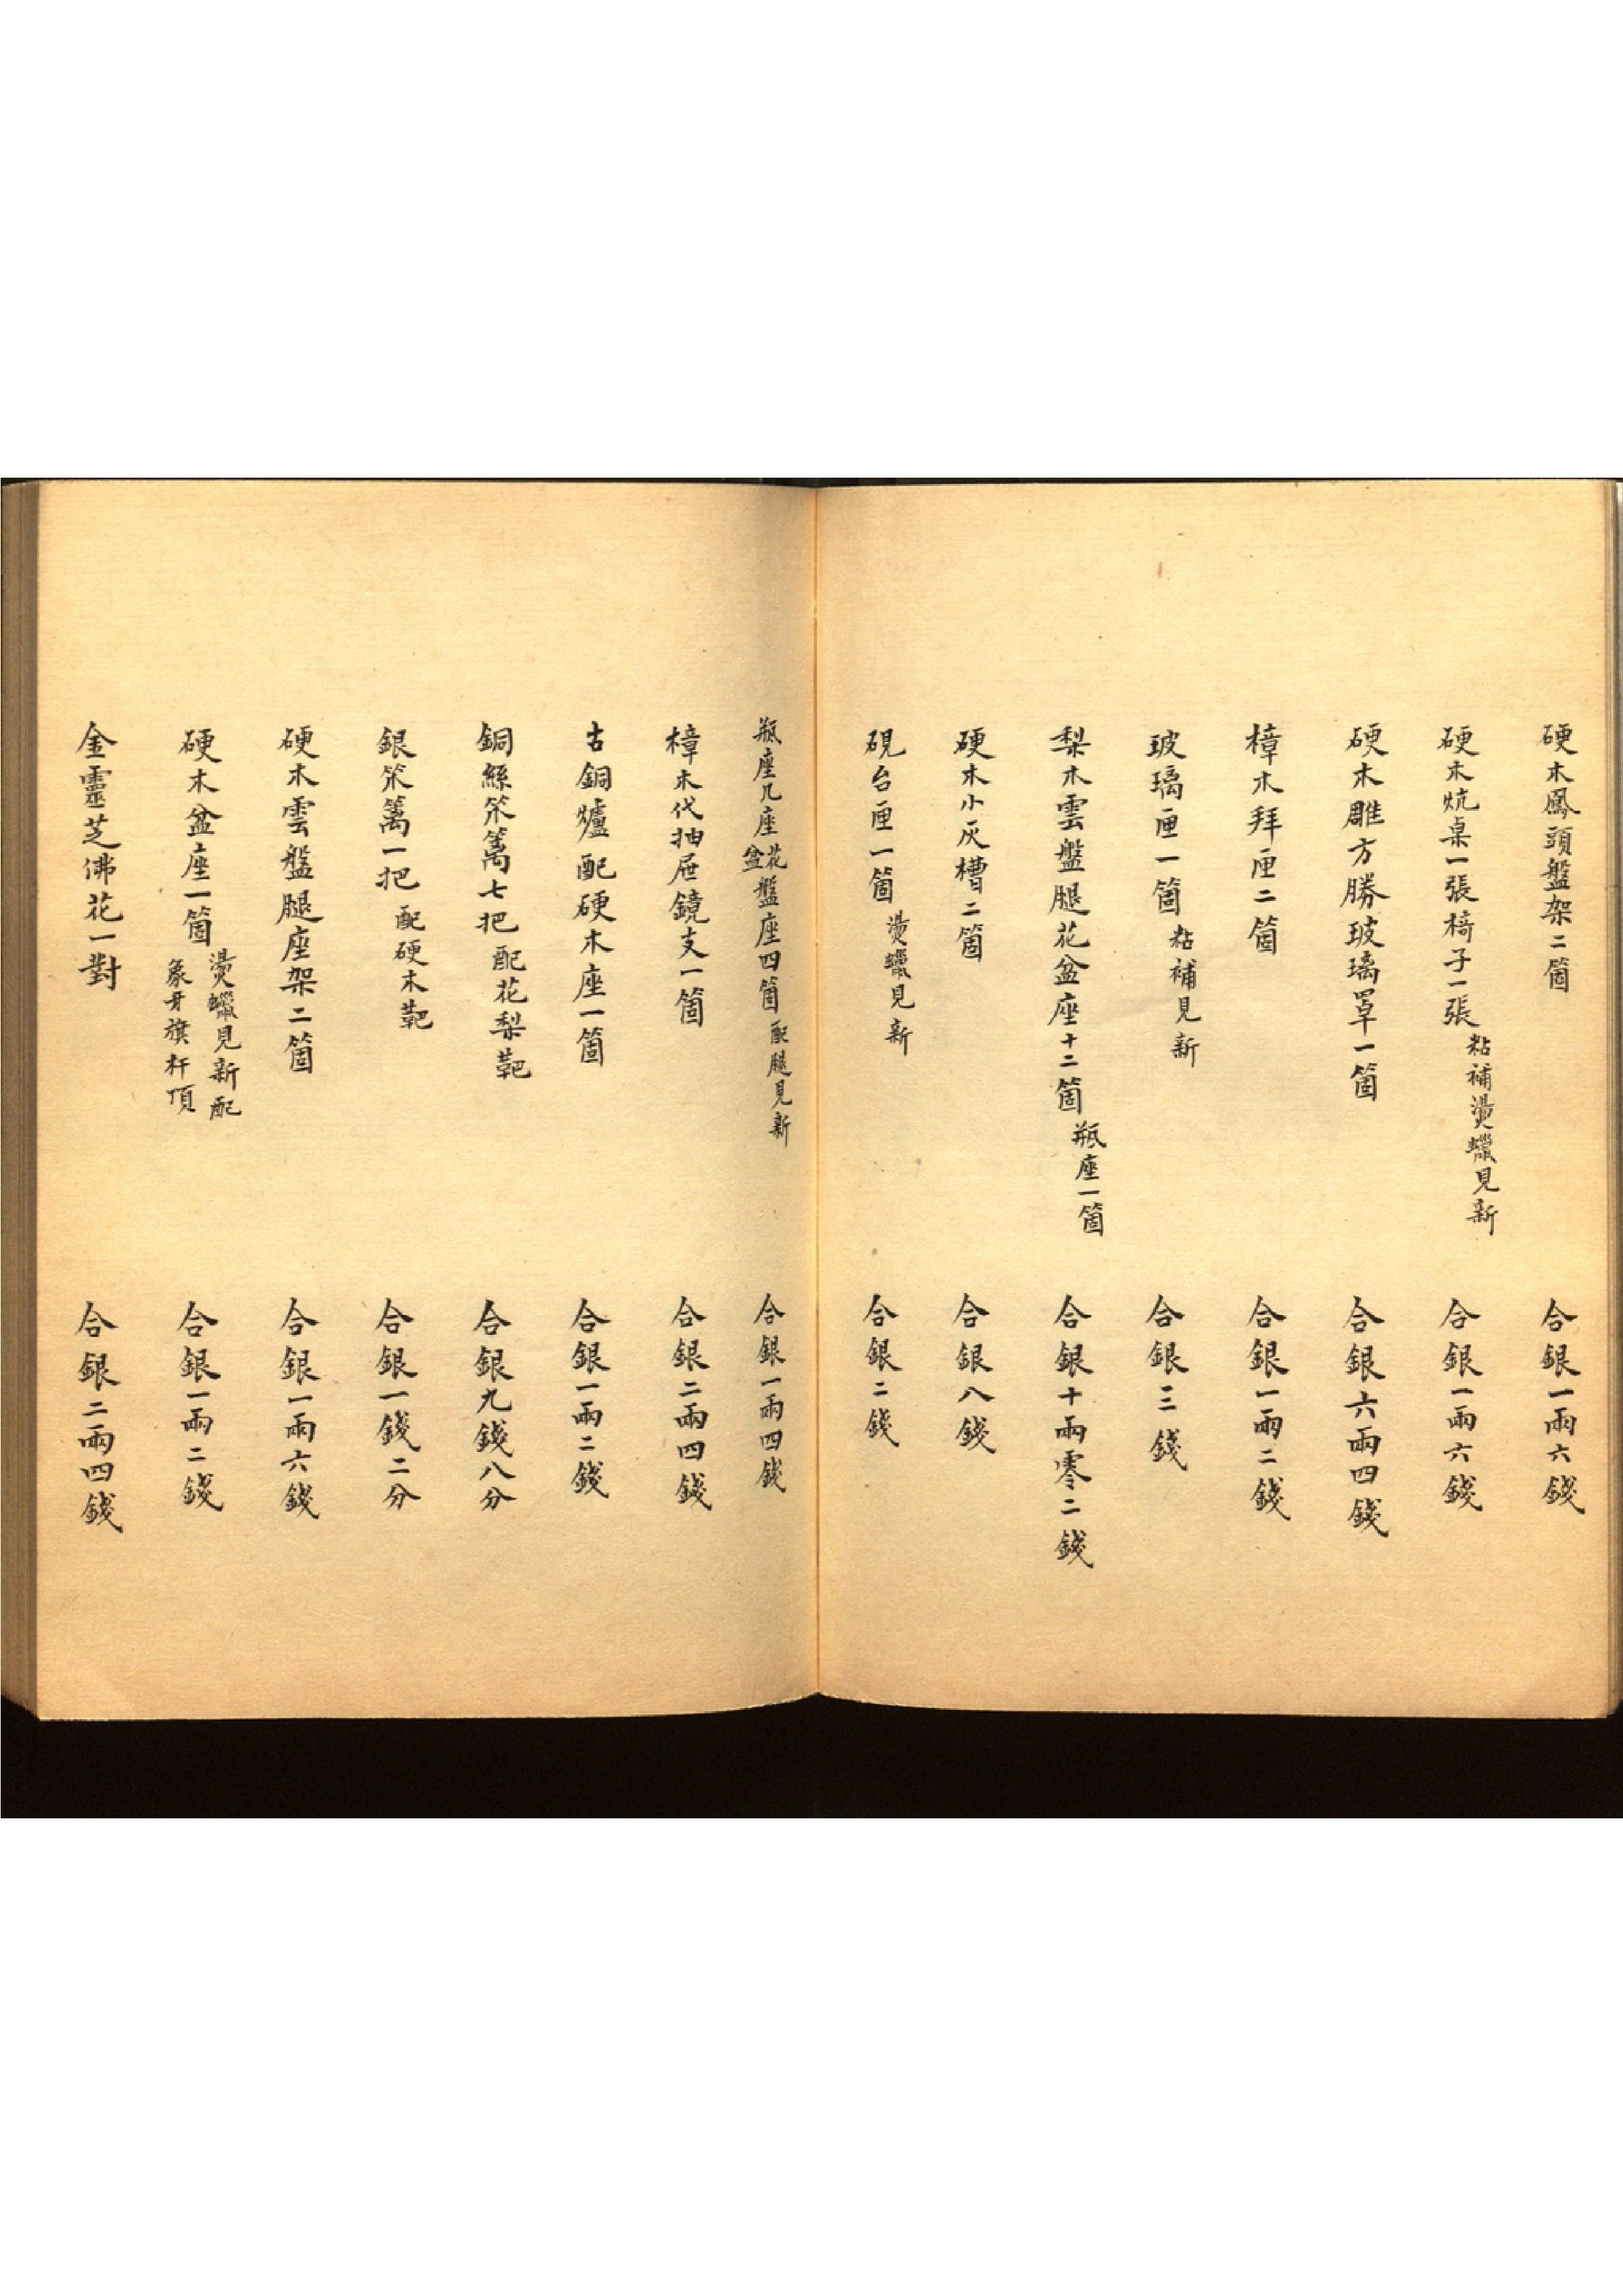 硬木鳳頭盤架二箇 合銀一兩六錢
硬木炕桌一張椅子一張 粘補燙蠟見新 合銀一兩六錢
硬木雕方勝玻璃罩一箇 合銀六兩四錢
樟木拜匣二箇 合銀一兩二錢
玻璃匣一箇 粘補見新 合銀三錢
梨木雲盤腿花盆座十二箇 瓶座一箇 合銀十兩零二錢
硬木小灰槽二箇 合銀八錢
硯台匣一箇 燙蠟見新 合銀二錢
瓶座几座花盆盤座四箇 配腿見新 合銀一兩四錢
樟木代抽屉鏡支一箇 合銀二兩四錢
古銅爐配硬木座一箇 合銀一兩二錢
銅絲笊篱七把 配花梨靶 合銀九錢八分
銀笊篱一把 配硬木靶 合銀一錢二分
硬木雲盤腿座架二箇 合銀一兩六錢
硬木盆座一箇 燙蠟見新配象牙旗杆頂 合銀一兩二錢
金靈芝佛花一對 合銀二兩四錢